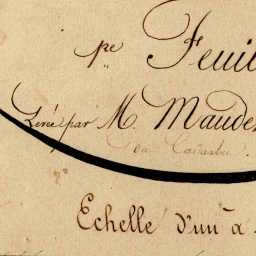 pe Feuil
Levé par M. Maude
du Cadastre.
Echelle d'un à